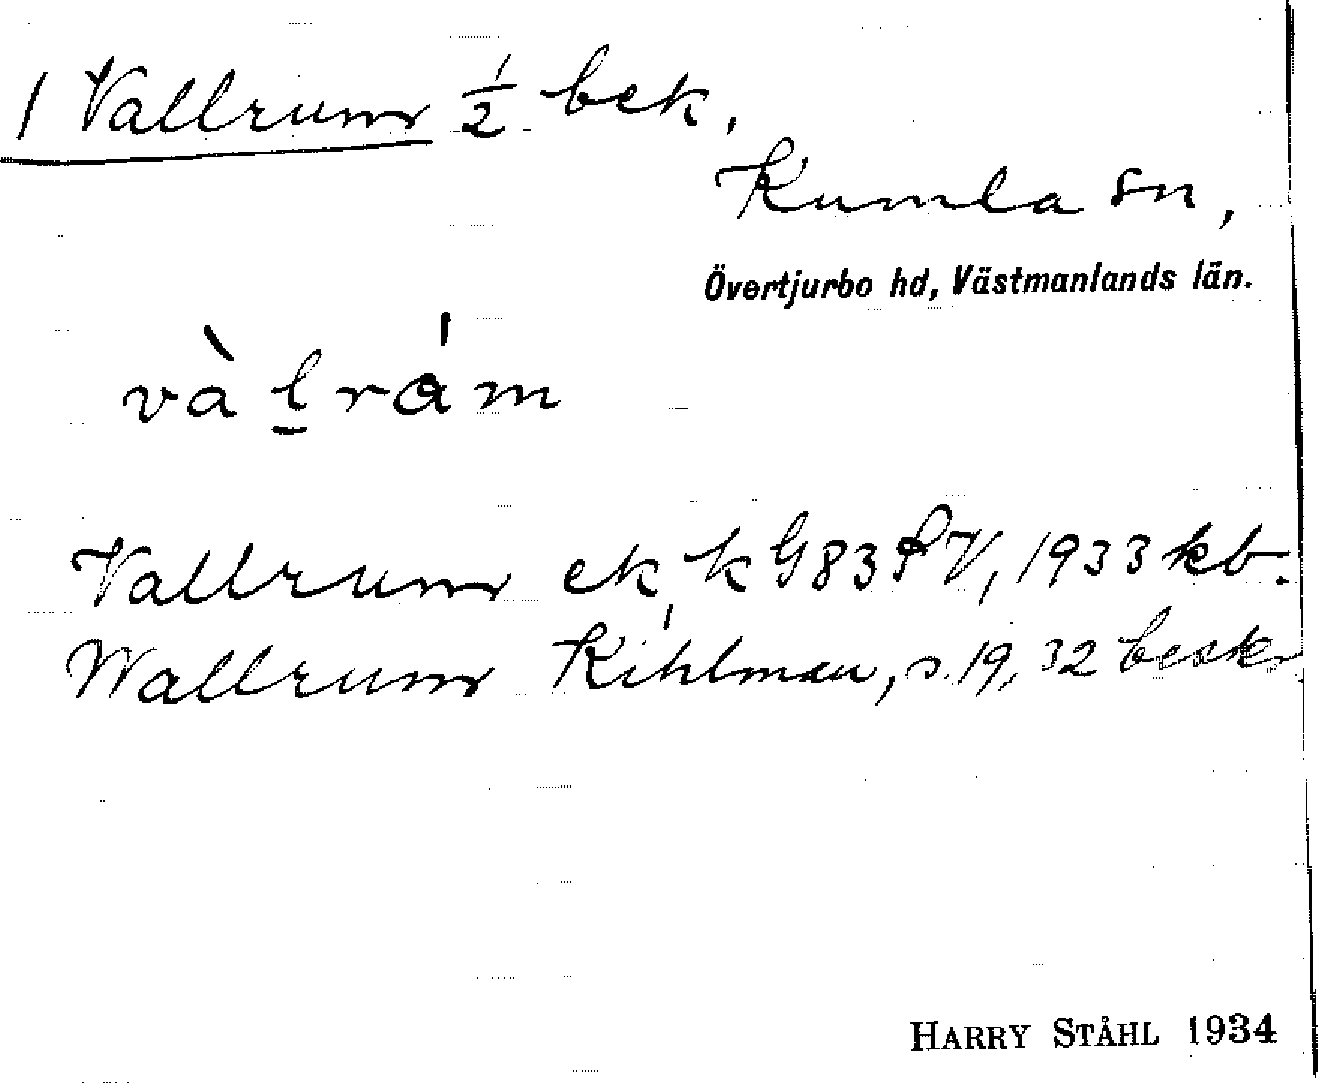 1 Vallrum ½ bek,
Kumla sn,
Övertjurbo hd, Västmanlands län.
và l̲rám
Vallrum ek, k G83 V, 1933 kb.
Wallrum Kihlman, s. 19, 32 beskr
HARRY STÅHL 1934